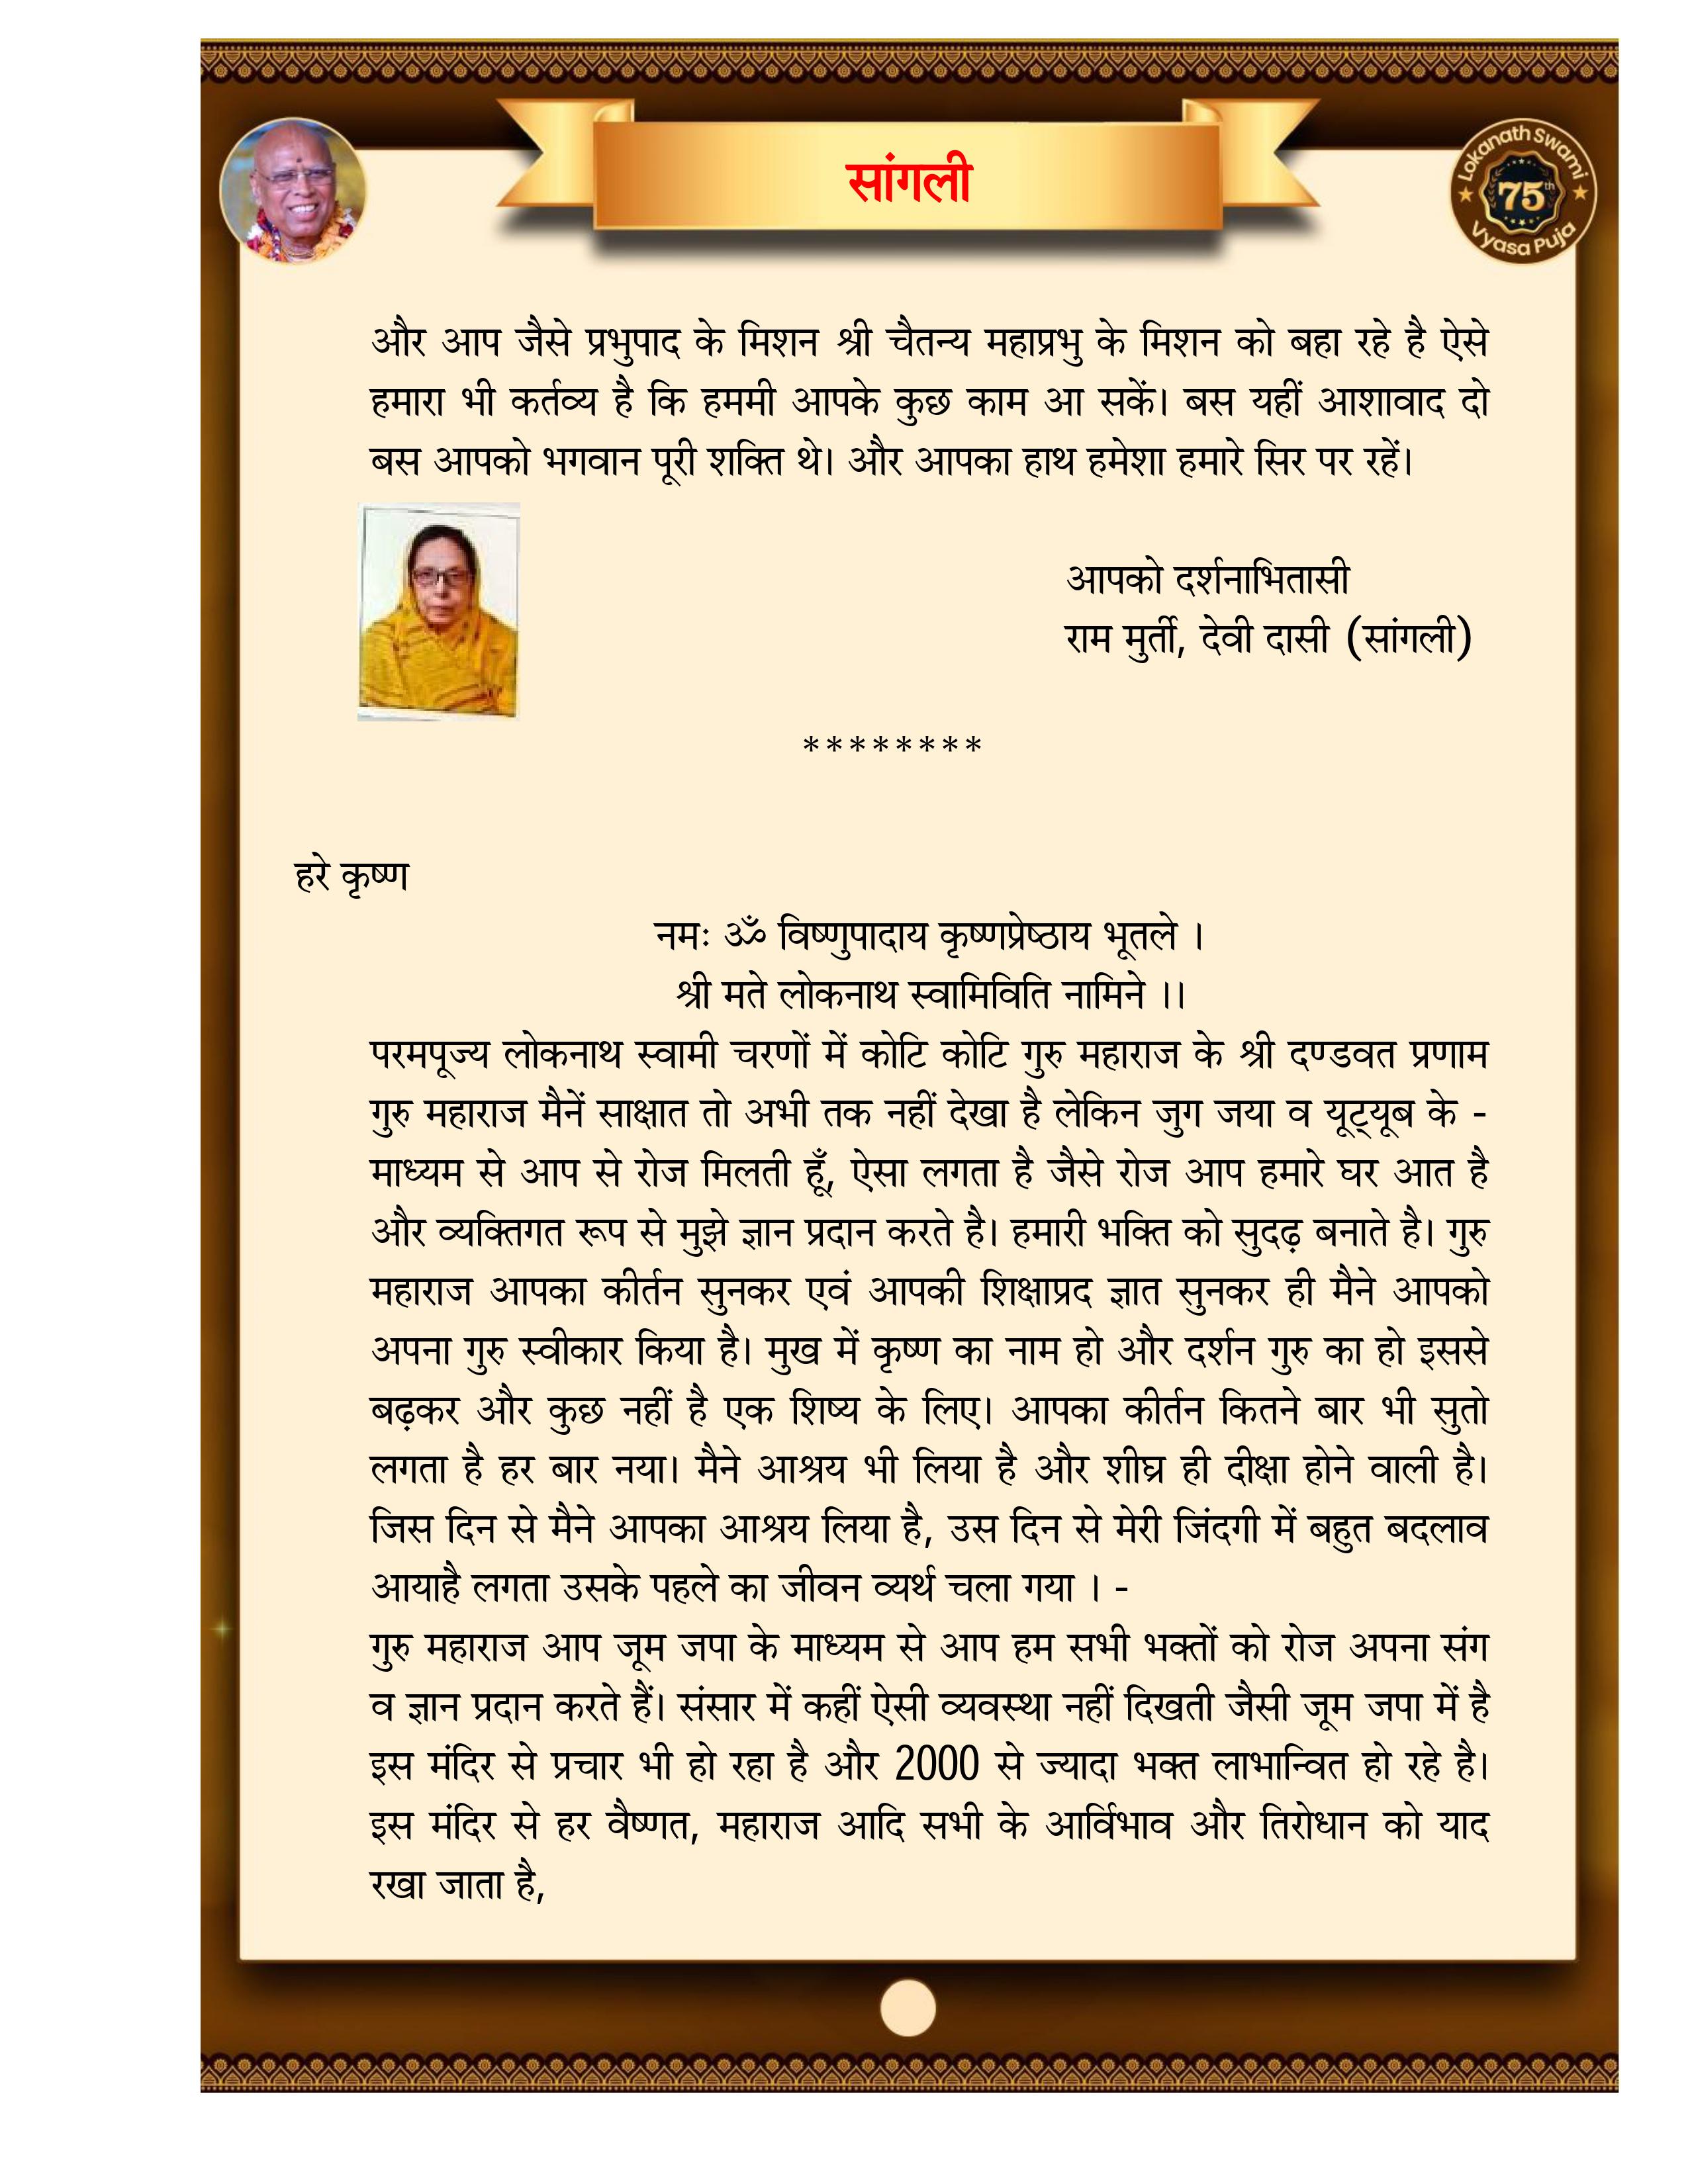 सांगली
Lokanath Swami
75th
Vyasa Puja
और आप जैसे प्रभुपाद के मिशन श्री चैतन्य महाप्रभु के मिशन को बहा रहे है ऐसे
हमारा भी कर्तव्य है कि हममी आपके कुछ काम आ सकें। बस यहीं आशावाद दो
बस आपको भगवान पूरी शक्ति थे। और आपका हाथ हमेशा हमारे सिर पर रहें।
आपको दर्शनाभितासी
राम मुर्ती, देवी दासी (सांगली)
********
हरे कृष्ण
नमः ॐ विष्णुपादाय कृष्णप्रेष्ठाय भूतले ।
श्री मते लोकनाथ स्वामिविति नामिने ।।
परमपूज्य लोकनाथ स्वामी चरणों में कोटि कोटि गुरु महाराज के श्री दण्डवत प्रणाम
गुरु महाराज मैनें साक्षात तो अभी तक नहीं देखा है लेकिन जुग जया व यूट्यूब के -
माध्यम से आप से रोज मिलती हूँ, ऐसा लगता है जैसे रोज आप हमारे घर आत है
और व्यक्तिगत रूप से मुझे ज्ञान प्रदान करते है। हमारी भक्ति को सुदढ़ बनाते है। गुरु
महाराज आपका कीर्तन सुनकर एवं आपकी शिक्षाप्रद ज्ञात सुनकर ही मैने आपको
अपना गुरु स्वीकार किया है। मुख में कृष्ण का नाम हो और दर्शन गुरु का हो इससे
बढ़कर और कुछ नहीं है एक शिष्य के लिए। आपका कीर्तन कितने बार भी सुतो
लगता है हर बार नया। मैने आश्रय भी लिया है और शीघ्र ही दीक्षा होने वाली है।
जिस दिन से मैने आपका आश्रय लिया है, उस दिन से मेरी जिंदगी में बहुत बदलाव
आयाहै लगता उसके पहले का जीवन व्यर्थ चला गया । -
गुरु महाराज आप जूम जपा के माध्यम से आप हम सभी भक्तों को रोज अपना संग
व ज्ञान प्रदान करते हैं। संसार में कहीं ऐसी व्यवस्था नहीं दिखती जैसी जूम जपा में है
इस मंदिर से प्रचार भी हो रहा है और 2000 से ज्यादा भक्त लाभान्वित हो रहे है।
इस मंदिर से हर वैष्णत, महाराज आदि सभी के आर्विभाव और तिरोधान को याद
रखा जाता है,